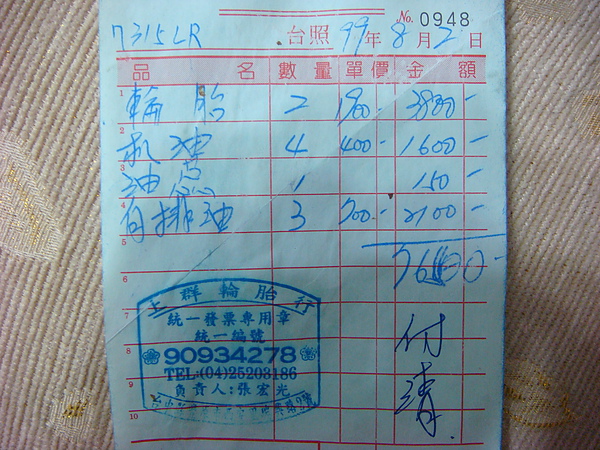 No. 0948
7315LR 台照 99年8月2日
品名 數量 單價 金額
1 輪胎 2 1900- 3800-
2 机油 4 400- 1600-
3 油芯 1 150-
4 自排油 3 700- 2100-
5
6
7
8
9
10
付清
上群輪胎行
統一發票專用章
統一編號
90934278
TEL:(04)25203186
負責人:張宏光